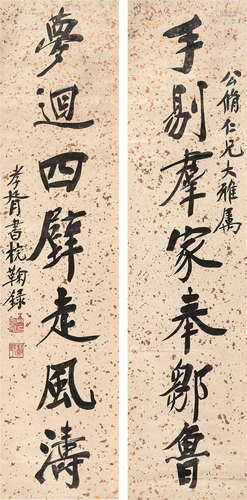 公脩仁兄大雅属
手剔羣家奉鄒魯
夢迴四壁走風濤
孝胥書杭鞠録